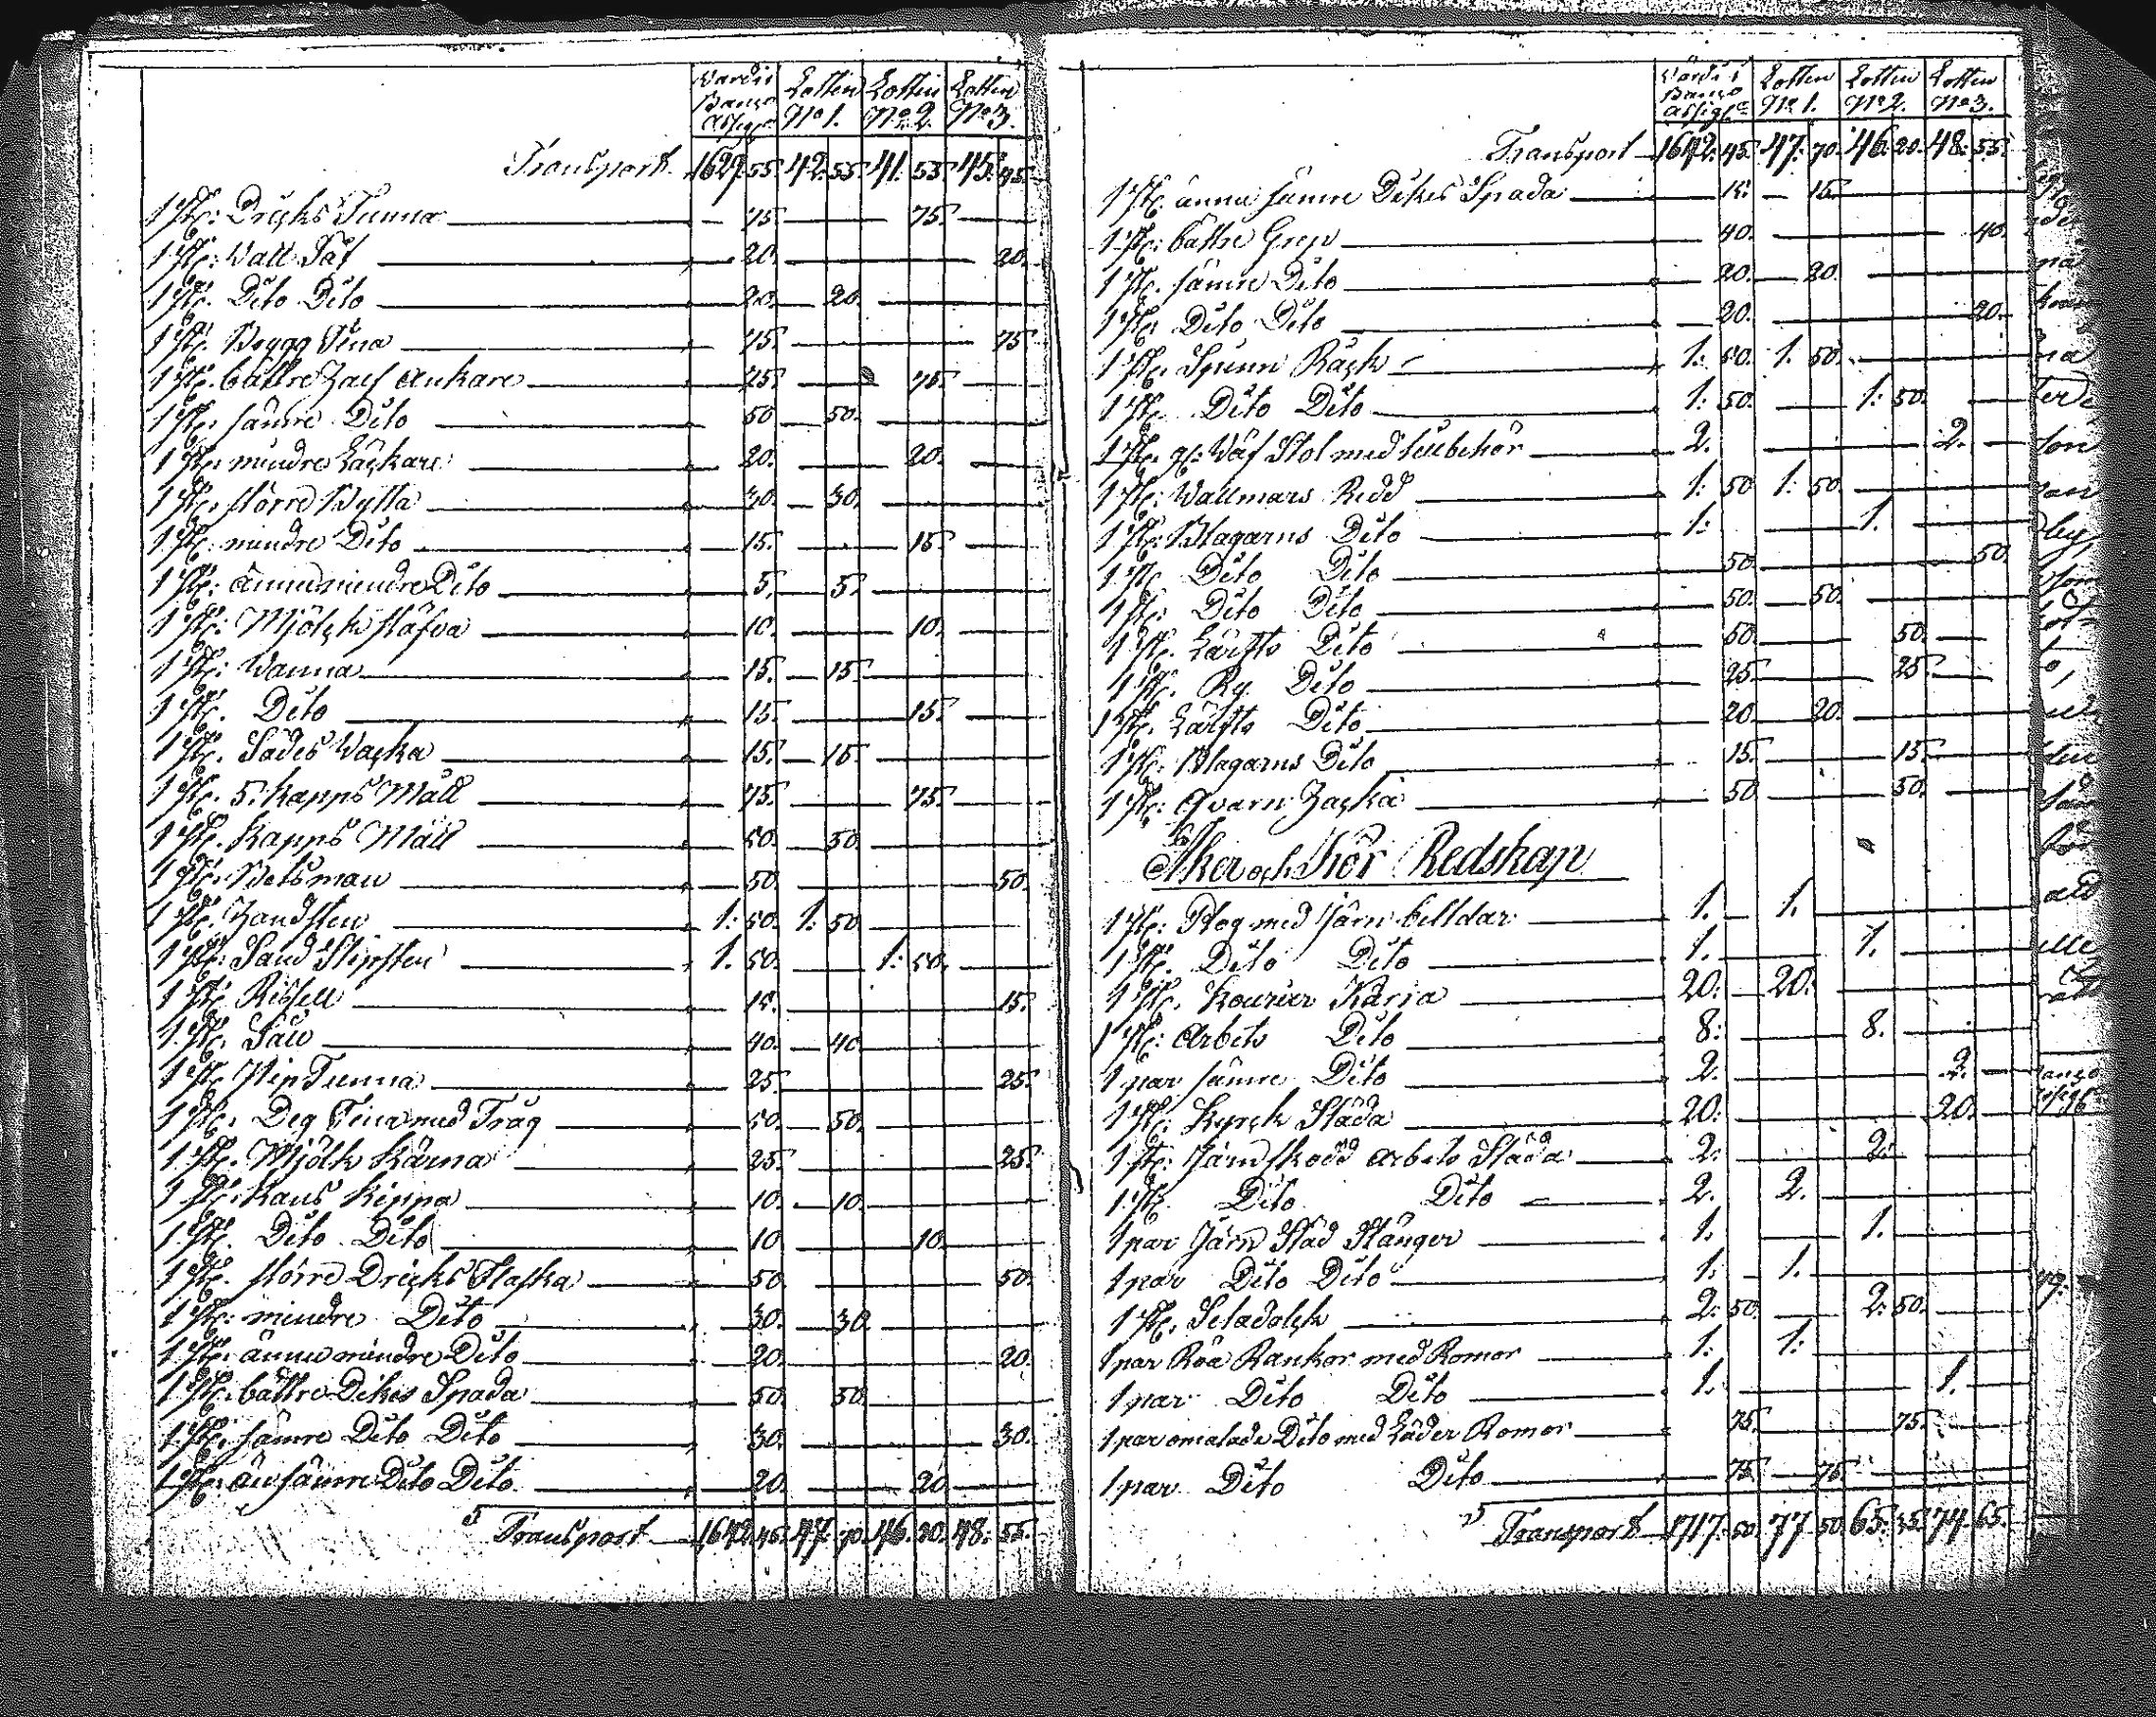 Värde i Banco Assign. Lotten No 1. Lotten No 2. Lotten No 3.
Transport 1629. 55. 42. 55. 41. 55. 45. 45.
1 st. Dricks Tunna 75. 75.
1 st. Watt Såf 20. 20.
1 st. Dito Dito 20. 20.
1 st. Brygg Tina 75. 75
1 st. bättre Half Ankare 75. 75.
1 st. sämre Dito 50 50.
1 st. mindre Läckare 20. 20.
1 st. större Bytta 30. 30.
1 st. mindre Dito 15. 15.
1 st. ännu mindre Dito 5. 5.
1 st. Mjölck stäfva 10. 10.
1 st. Wanna 15. 15.
1 st. Dito 15. 15.
1 st. Sädes Wacka 15. 15.
1 st. 5. Kapps Mått 75. 75.
1 st. Kapps Mått 50. 50.
1 st. Betsman 50. 50.
1 st. Handsten 1. 50. 1. 50.
1 st. Sand Slipsten 1. 50. 1. 50.
1 st. Rissell 15. 15.
1 st. Såll 40. 40
1 st. Tunna 25. 25.
1 st. Deg Tina med Tråg 50. 50.
1 st. Mjölk Kärna 25. 25.
1 st. Kaus Kippa 10. 10.
1 st. Dito Dito 10 10.
1 st. större Dricks Flaska 50. 50.
1 st. mindre Dito 30. 30.
1 st. ännu mindre Dito 20. 20.
1 st. bättre Dikes Spada 50. 50.
1 st. sämre Dito Dito 30. 30.
1 st. än sämre Dito Dito 20. 20.
Transport 1642. 45. 47. 70. 46. 20. 48. 55.
Värde i Banco Assign. Lotten No 1. Lotten No 2. Lotten No 3.
Transport 1642. 45. 47. 70. 46. 20. 48. 55.
1 st. ännu sämre Dikes Spada 15. 15.
1 st. bättre Grep 40. 40.
1 st. sämre Dito 20. 20.
1 st. Dito Dito 20. 20.
1 st. Spinn Räck 1. 50. 1. 50.
1 st. Dito Dito 1. 50. 1. 50.
1 st. gl: Wäf Stol med tillbehör 2. 2.
1 st. Wallmars Redd 1. 50 1. 50.
1 st. Blagarns Dito 1. 1.
1 st. Dito Dito 50. 50.
1 st. Dito Dito 50. 50.
1 st. Lärfts Dito 50. 50.
1 st. Ry Dito 25. 25.
1 st. Lärfts Dito 20. 20.
1 st. Blagarns Dito 15. 15.
1 st. Qvarn Hacka 50. 50.
Åker och Kör Redskap
1 st. Plog med Järn billdar 1. 1.
1 st. Dito Dito 1. 1.
1 st. Kourier Kärra 20. 20.
1 st. Arbets Dito 8. 8.
1 par sämre Dito 2. 2.
1 st. Kyrck Släda 20. 20.
1 st. Järnskodd Arbets Släda 2. 2.
1 st. Dito Dito 2. 2.
1 par Järn Släd Stänger 1. 1.
1 par Dito Dito 1. 1.
1 st. Seladolck 2. 50. 2. 50.
1 par Röa Rankor med Romor 1. 1.
1 par Dito Dito 1. 1.
1 par omalade Dito med Läder Romor 75. 75.
1 par Dito Dito 75. 75.
Transport 1717. 50. 77. 50. 65. 35. 74. 65.